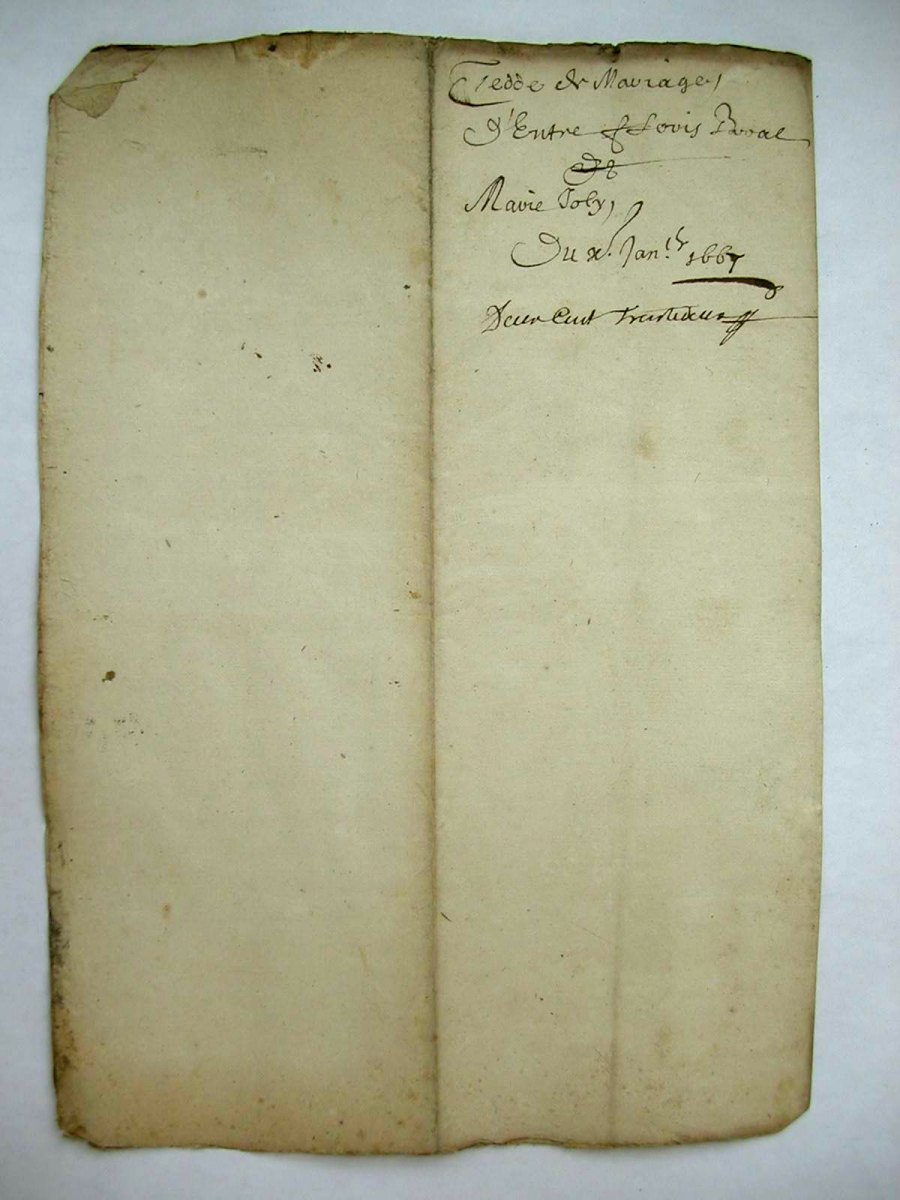 Cedde de Mariage,
D'Entre Lovis
&
Marie Joly,
Du x. Jan.er 1667
Deux Cent Trentedeux